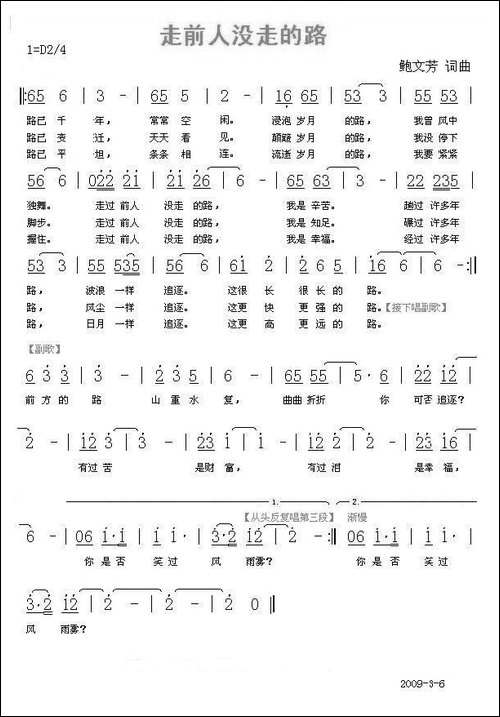 走前人没走的路
1=D2/4
鲍文芳 词曲
‖:65 6 | 3 - | 65 5 | 2 - | 16 65 | 53 3 | 55 53 |
路已千年， 常常空闲。 浸泡岁月的路， 我曾风中
路已变迁， 天天看见。 颠簸岁月的路， 我没停下
路已平坦， 条条相连。 流逝岁月的路， 我要紧紧
56 6 | 022 21 | 21 26 | 6 - | 65 63 | 2 - | 22 235 |
独舞。 走过前人没走的路， 我是辛苦。 趟过许多年
脚步。 走过前人没走的路， 我是知足。 碾过许多年
握住。 走过前人没走的路， 我是幸福。 经过许多年
53 3 | 55 535 | 56 6 | 61 2 | 3 26 | 16 6 | 6 - :‖
路， 波浪一样追逐。 这很长很长的路。
路， 风尘一样追逐。 这更快更强的路。【接下唱副歌】
路， 日月一样追逐。 这更高更远的路。
【副歌】
6 33 | 3 - | 2 35 | 6 - | 65 55 | 5·6 | 22 12 |
前方的路 山重水复， 曲曲折折 你可否追逐？
2 - | 12 3 | 3 - | 23 1 | 1 - | 12 2 | 23 16 |
有过苦 是财富， 有过泪 是幸福，
1. 2.
【从头反复唱第三段】 渐慢
6 - | 06 1·1 | 15 5 | 3·2 12 | 2 - :‖ 06 1·1 | 15 5 |
你是否笑过风雨雾？ 你是否笑过
3·2 12 | 2 - | 2 - | 2 0 ‖
风 雨雾？
2009-3-6